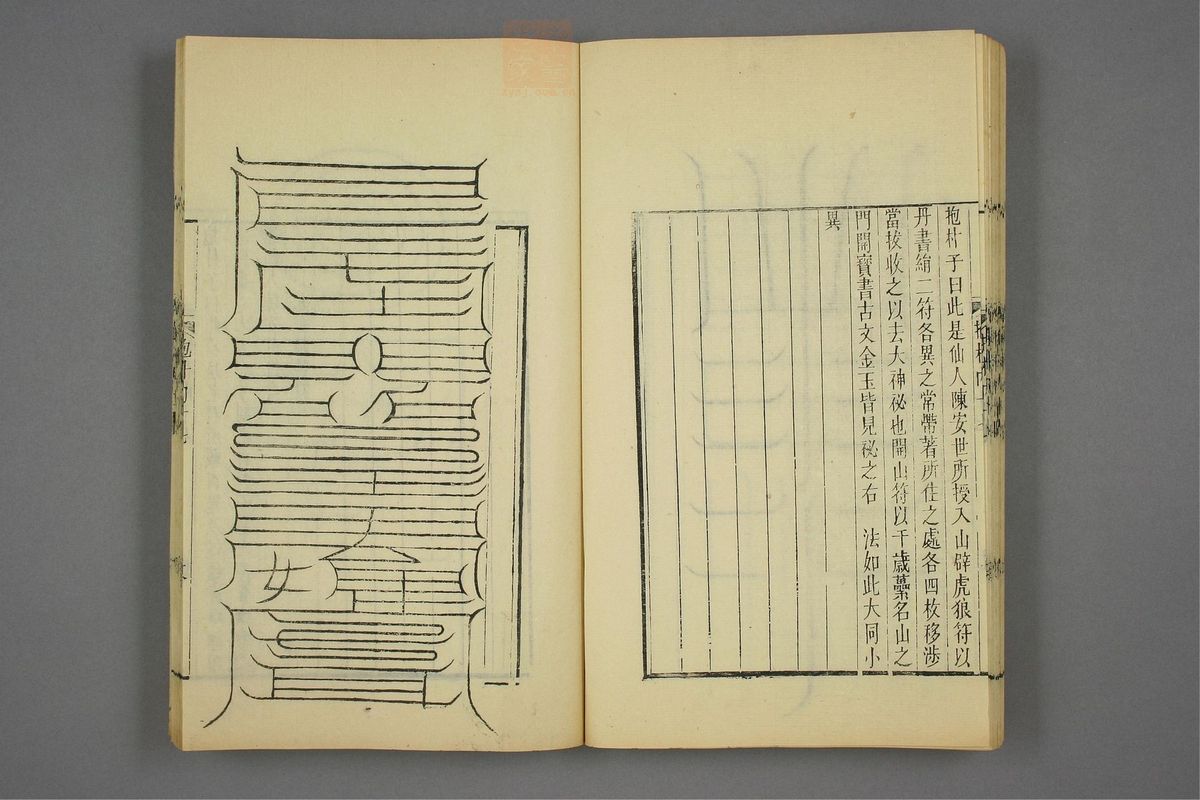 抱朴子曰此是仙人陳安世所授入山辟虎狼符以
丹書絹二符各異之常帶著所住之處各四枚移涉
當拔收之以去大神祕也開山符以千歲蔂名山之
門開寶書古文金玉皆見祕之右　法如此大同小
異
女